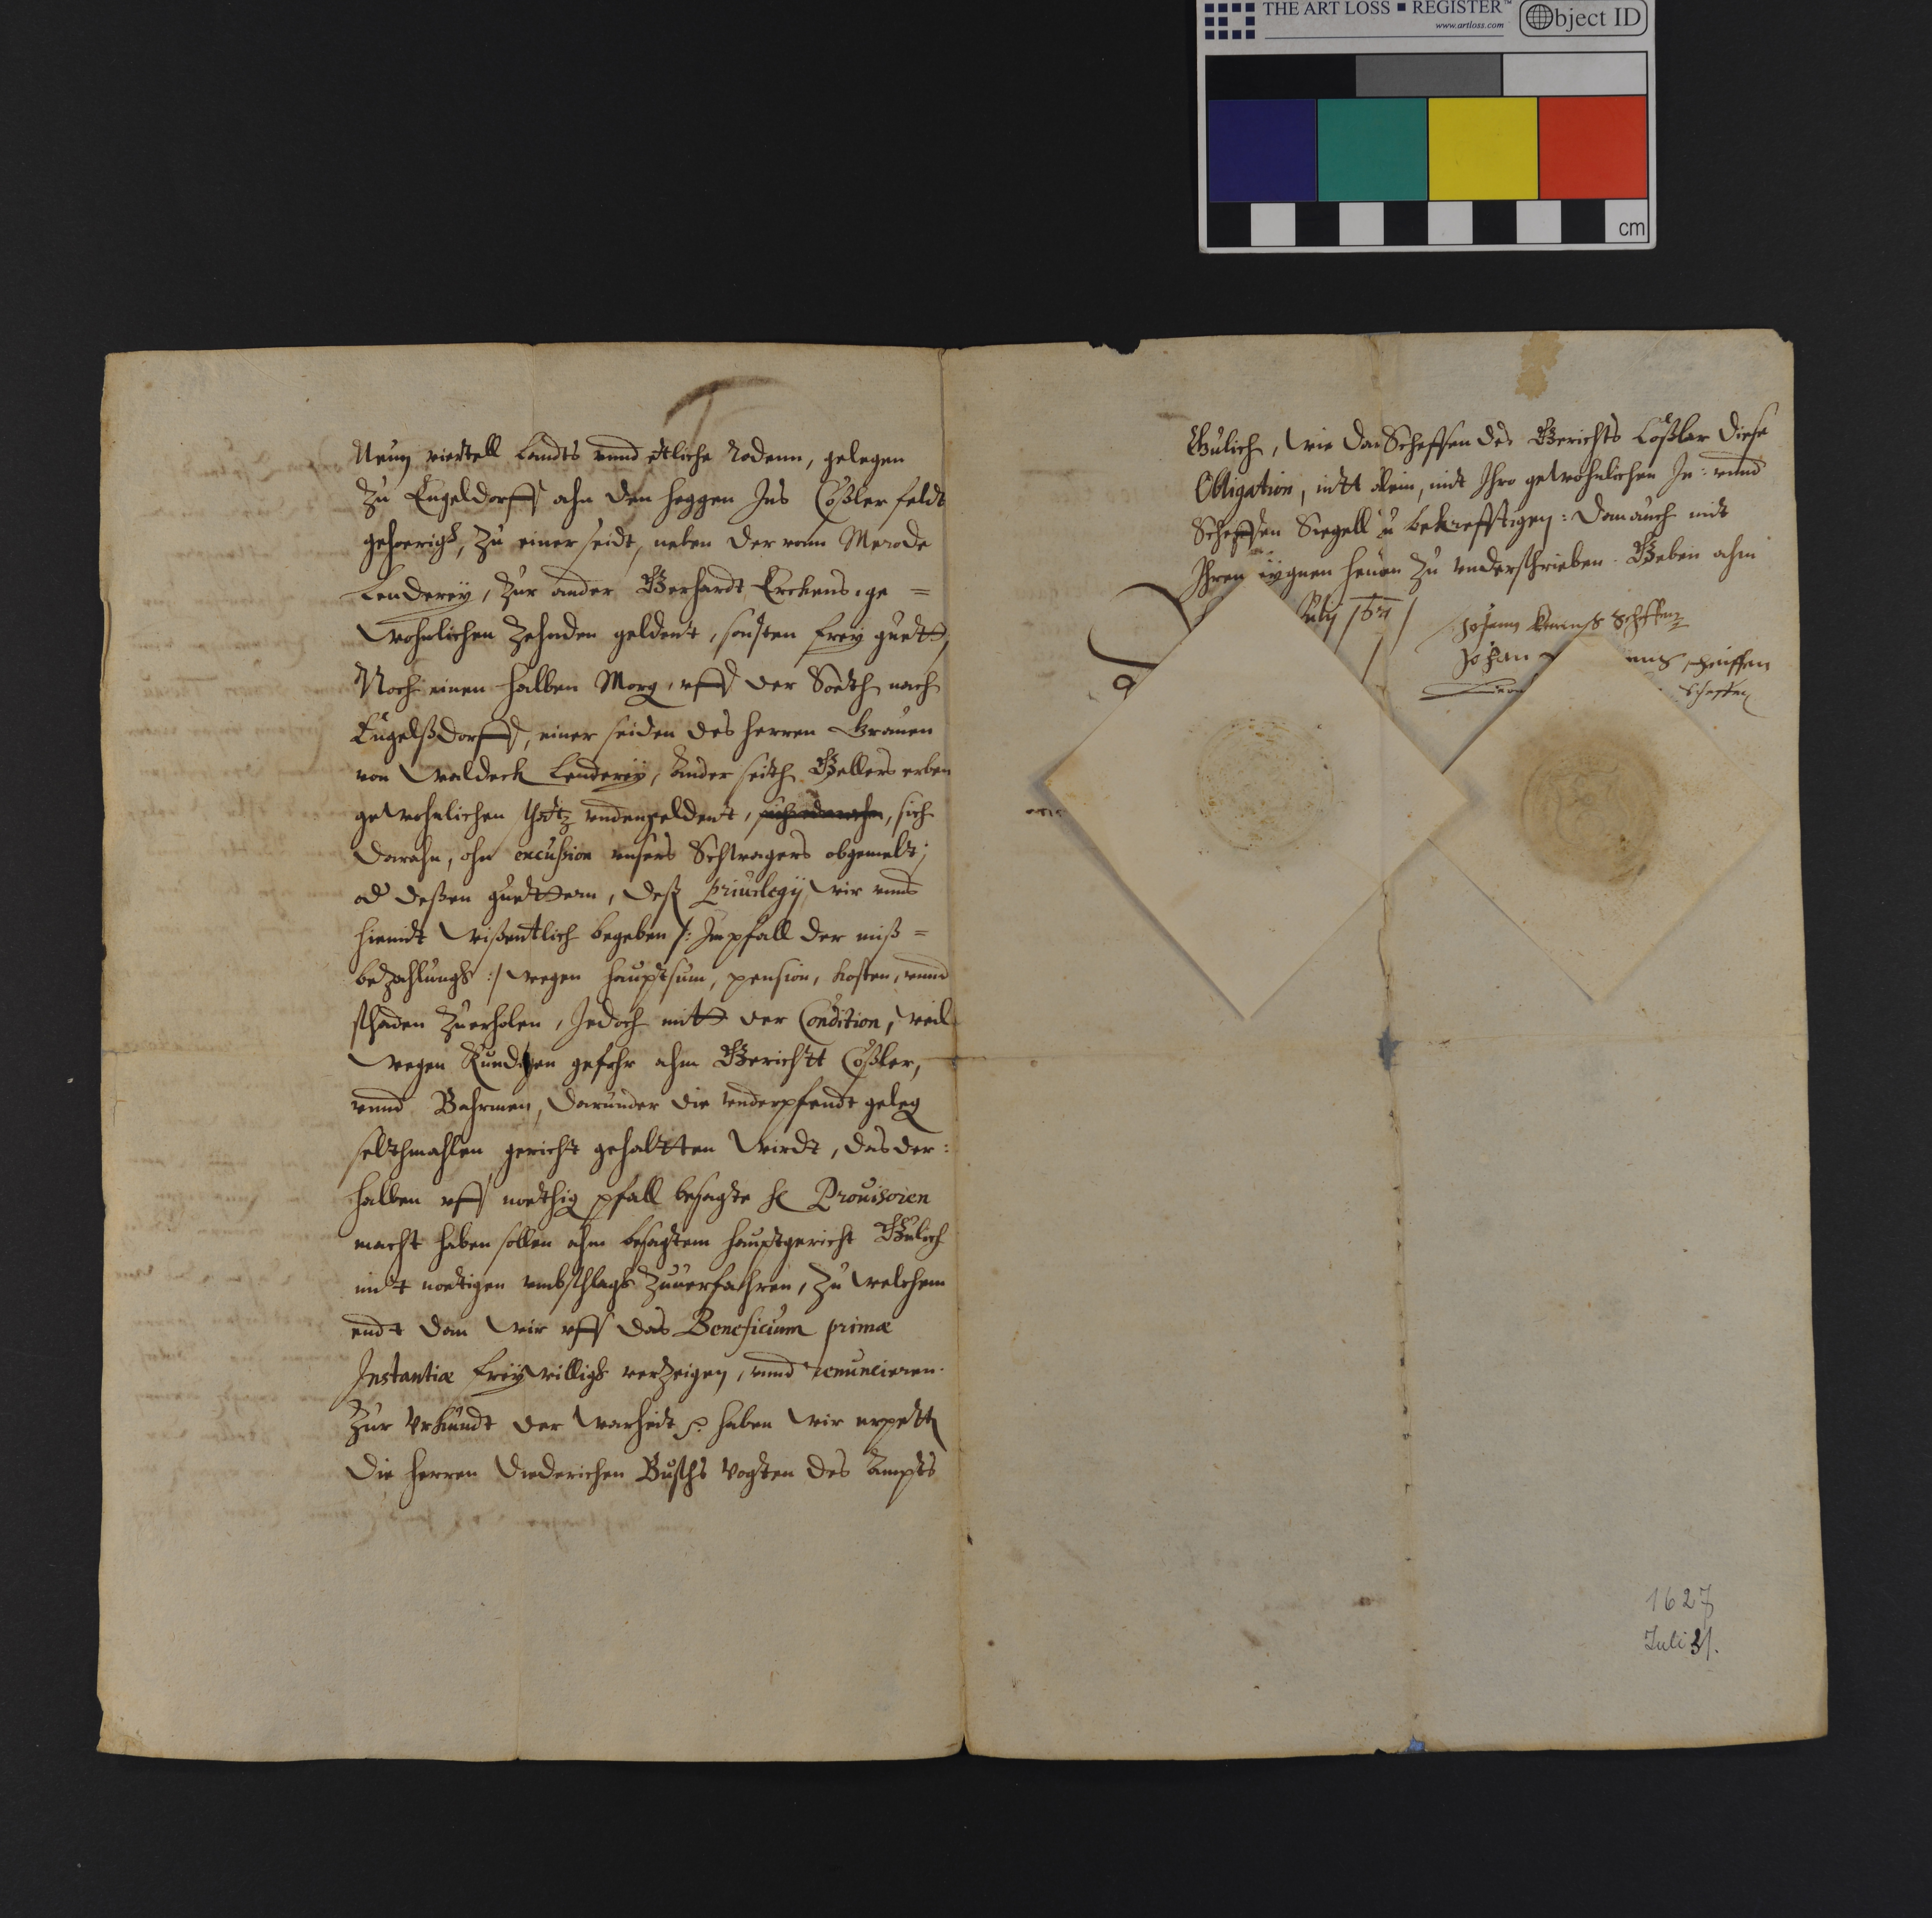 THE ART LOSS REGISTER™
www.artloss.com
Object ID
cm
Neun viertell Landts vnnd etliche Rodenn, gelegen
Zu Engeldorff ahn den heggen Ins Coßler feldt
gehoerigh, Zu einer seidt, neben der vonn Merode
Lenderey, Zur ander Gerhardt Erckens, ge=
wohnlichen Zehnden geldent, sonsten frey guett,
Noch einen halben Morg, vff der Soeth nach
Engelßdorff, einer seiden des herren Grauen
von Waldeck Lenderey, ander seith Gellers erben
gewohnlichen geldent, sich
darahn, ohn excussion vnsers Schwagers obgemelt,
od deßen guettern, deß Priuilegij wir vnns
hiemit wißentlich begeben /: Im pfall der miß=
bezahlungh :/ wegen hauptsum, pension, kosten, vnnd
schaden Zuerholen, Jedoch mitt der Condition, weil
wegen gefohr ahm Gerichtt Coßler,
vnnd Bahrmen, darunder die vnderpfendt geleg
selthmahlen gericht gehaltten wirdt, das der:
halben vff noethig pfall besagte H Prouisoren
macht haben sollen ahm besagtem hauptgericht Gulich
mit noetigen vmbschlagh Zuuerfahren, Zu welchem
endt dan wir vff das Beneficium primæ
Instantiæ freywilligh verzeigen, vnnd renuncieren.
Zur Vrkundt der warheit haben wir erpett
die herren Diederichen Buschs Vogten des Ampts
Gulich, wie dan Scheffen des Gerichts Coßlar diese
Obligation, nitt alein, mit Ihro gewohnlichen In: vnnd
Scheffen Siegell zu bekrefftigen: dan auch mit
Ihren eygnen henen Zu vnderschrieben. Geben ahm
July 162
Johann Scheffen
Johan scheiffen
Scheffen
1627
Juli 31.